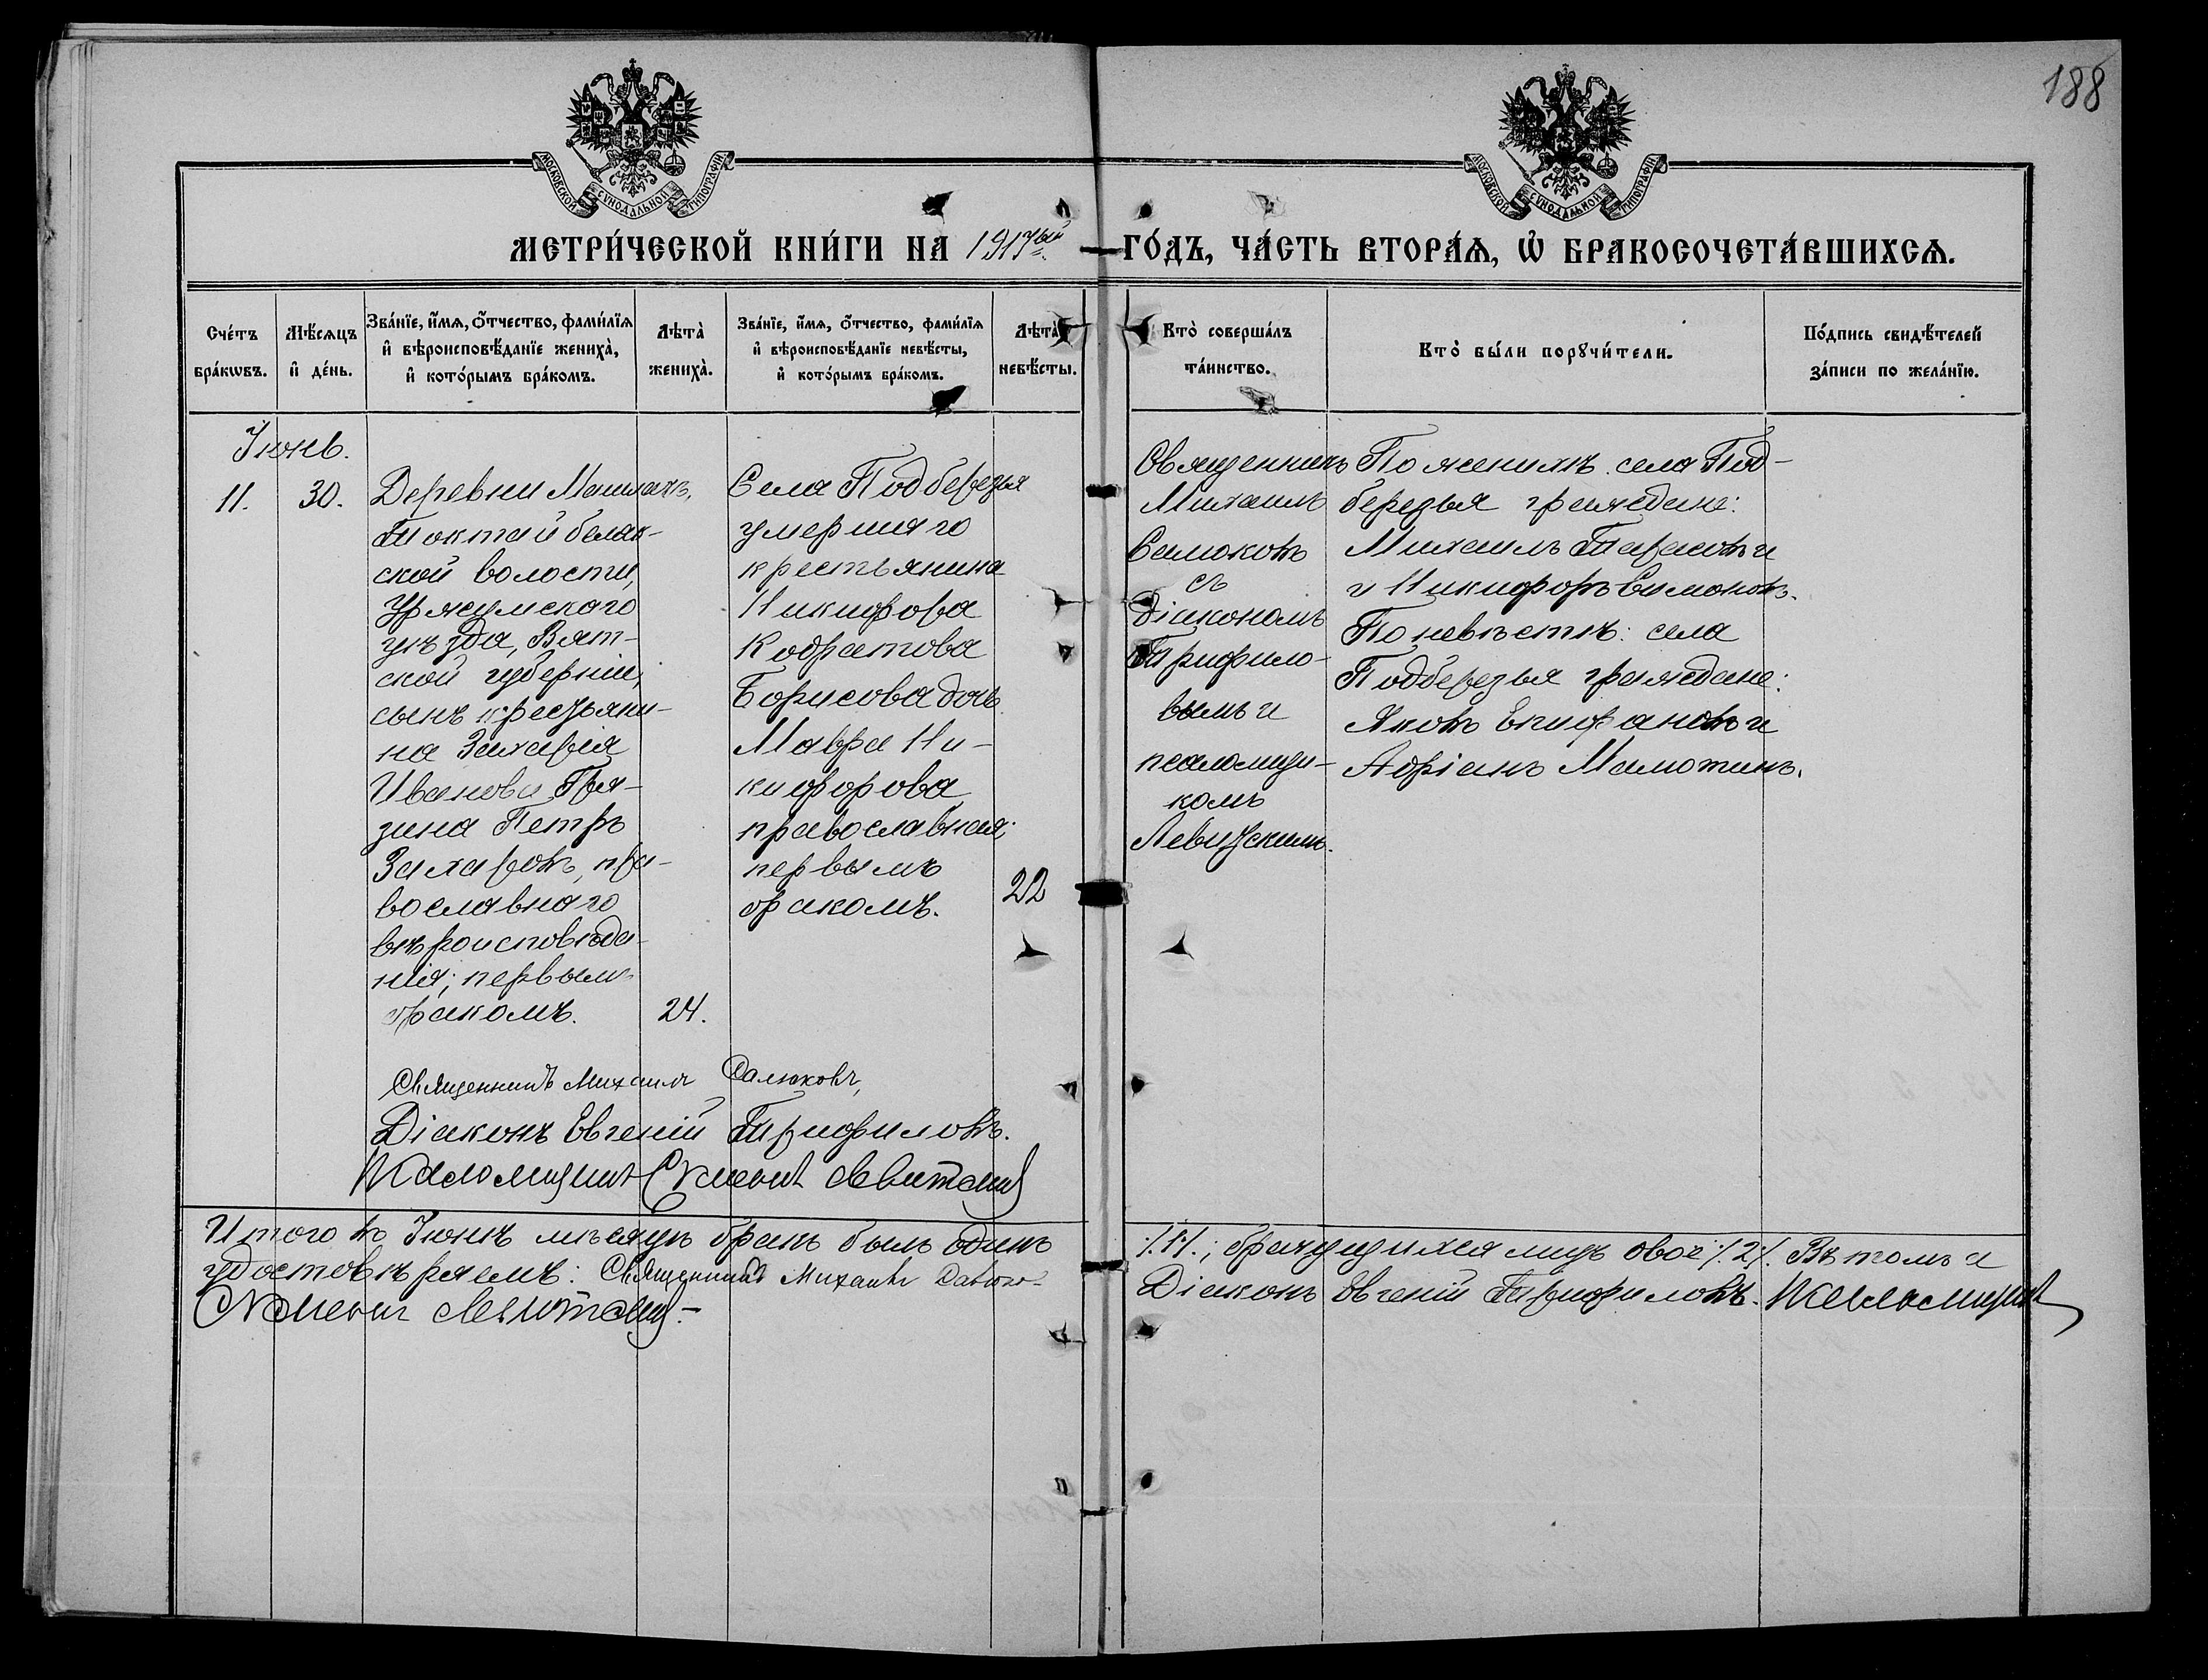 188
МОСКОВСКОЙ СУНОДАЛЬНОЙ ТИПОГРАФІИ
МОСКОВСКОЙ СУНОДАЛЬНОЙ ТИПОГРАФІИ
МЕТРИ́ЧЕСКОЙ КНИ́ГИ НА 1917ый ГО́ДЪ, ЧА́СТЬ ВТОРА́Я, Ѡ҆ БРАКОСОЧЕТА́ВШИХСЯ.
Сче́тъ бра́кѡвъ.
Мѣ́сяцъ и҆ де́нь.
Зва́нїе, и҆́мя, ѻ҆́тчество, фами́лїя
и҆ вѣроисповѣ́данїе жениха̀,
и҆ кото́рымъ бра́комъ.
Лѣта̀ жениха̀.
Зва́нїе, и҆́мя, ѻ҆́тчество, фами́лїя
и҆ вѣроисповѣ́данїе невѣ́сты,
и҆ кото́рымъ бра́комъ.
Лѣта̀ невѣ́сты.
Кто̀ соверша́лъ
та́инство.
Кто̀ бы́ли порꙋчи́тели.
По́дпись свидѣ́телей
за́писи по жела́нїю.
Іюнь.
11.
30.
Деревни
Токтайбеляк-
ской волости,
Уржумскаго
уѣзда, Вят-
ской губерніи,
сынъ крестьяни-
на Захарія
Иванова Гря-
зина Петръ
Захаровъ, пра-
вославнаго
вѣроисповѣда-
нія; первымъ
бракомъ.
24.
Села Подберезья
умершаго
крестьянина
Никифора
Кодратова
Борисова дочь
Мавра Ни-
кифорова,
православная;
первымъ
бракомъ.
22
Священникъ
Михаилъ
съ
Діакономъ
Трифило-
вымъ и
псаломщи-
комъ
Левитскимъ.
По женихѣ: села Под-
березья граждане:
Михаилъ Тарасовъ и
и Никифоръ Симоновъ.
По невѣстѣ: села
Подберезья граждане:
Яковъ Епифановъ и
Адріанъ Мамоткинъ.
Священникъ Михаилъ
Діаконъ Евгеній Трифиловъ.
Псаломщикъ Левитскій
Итого въ Іюнѣ мѣсяцѣ бракъ былъ одинъ /.1./.; брачущихся лицъ обое /.2./. Въ томъ и
удостовѣряемъ: Священникъ Михаилъ Діаконъ Евгеній Трифиловъ. Псаломщикъ
Левитскій.